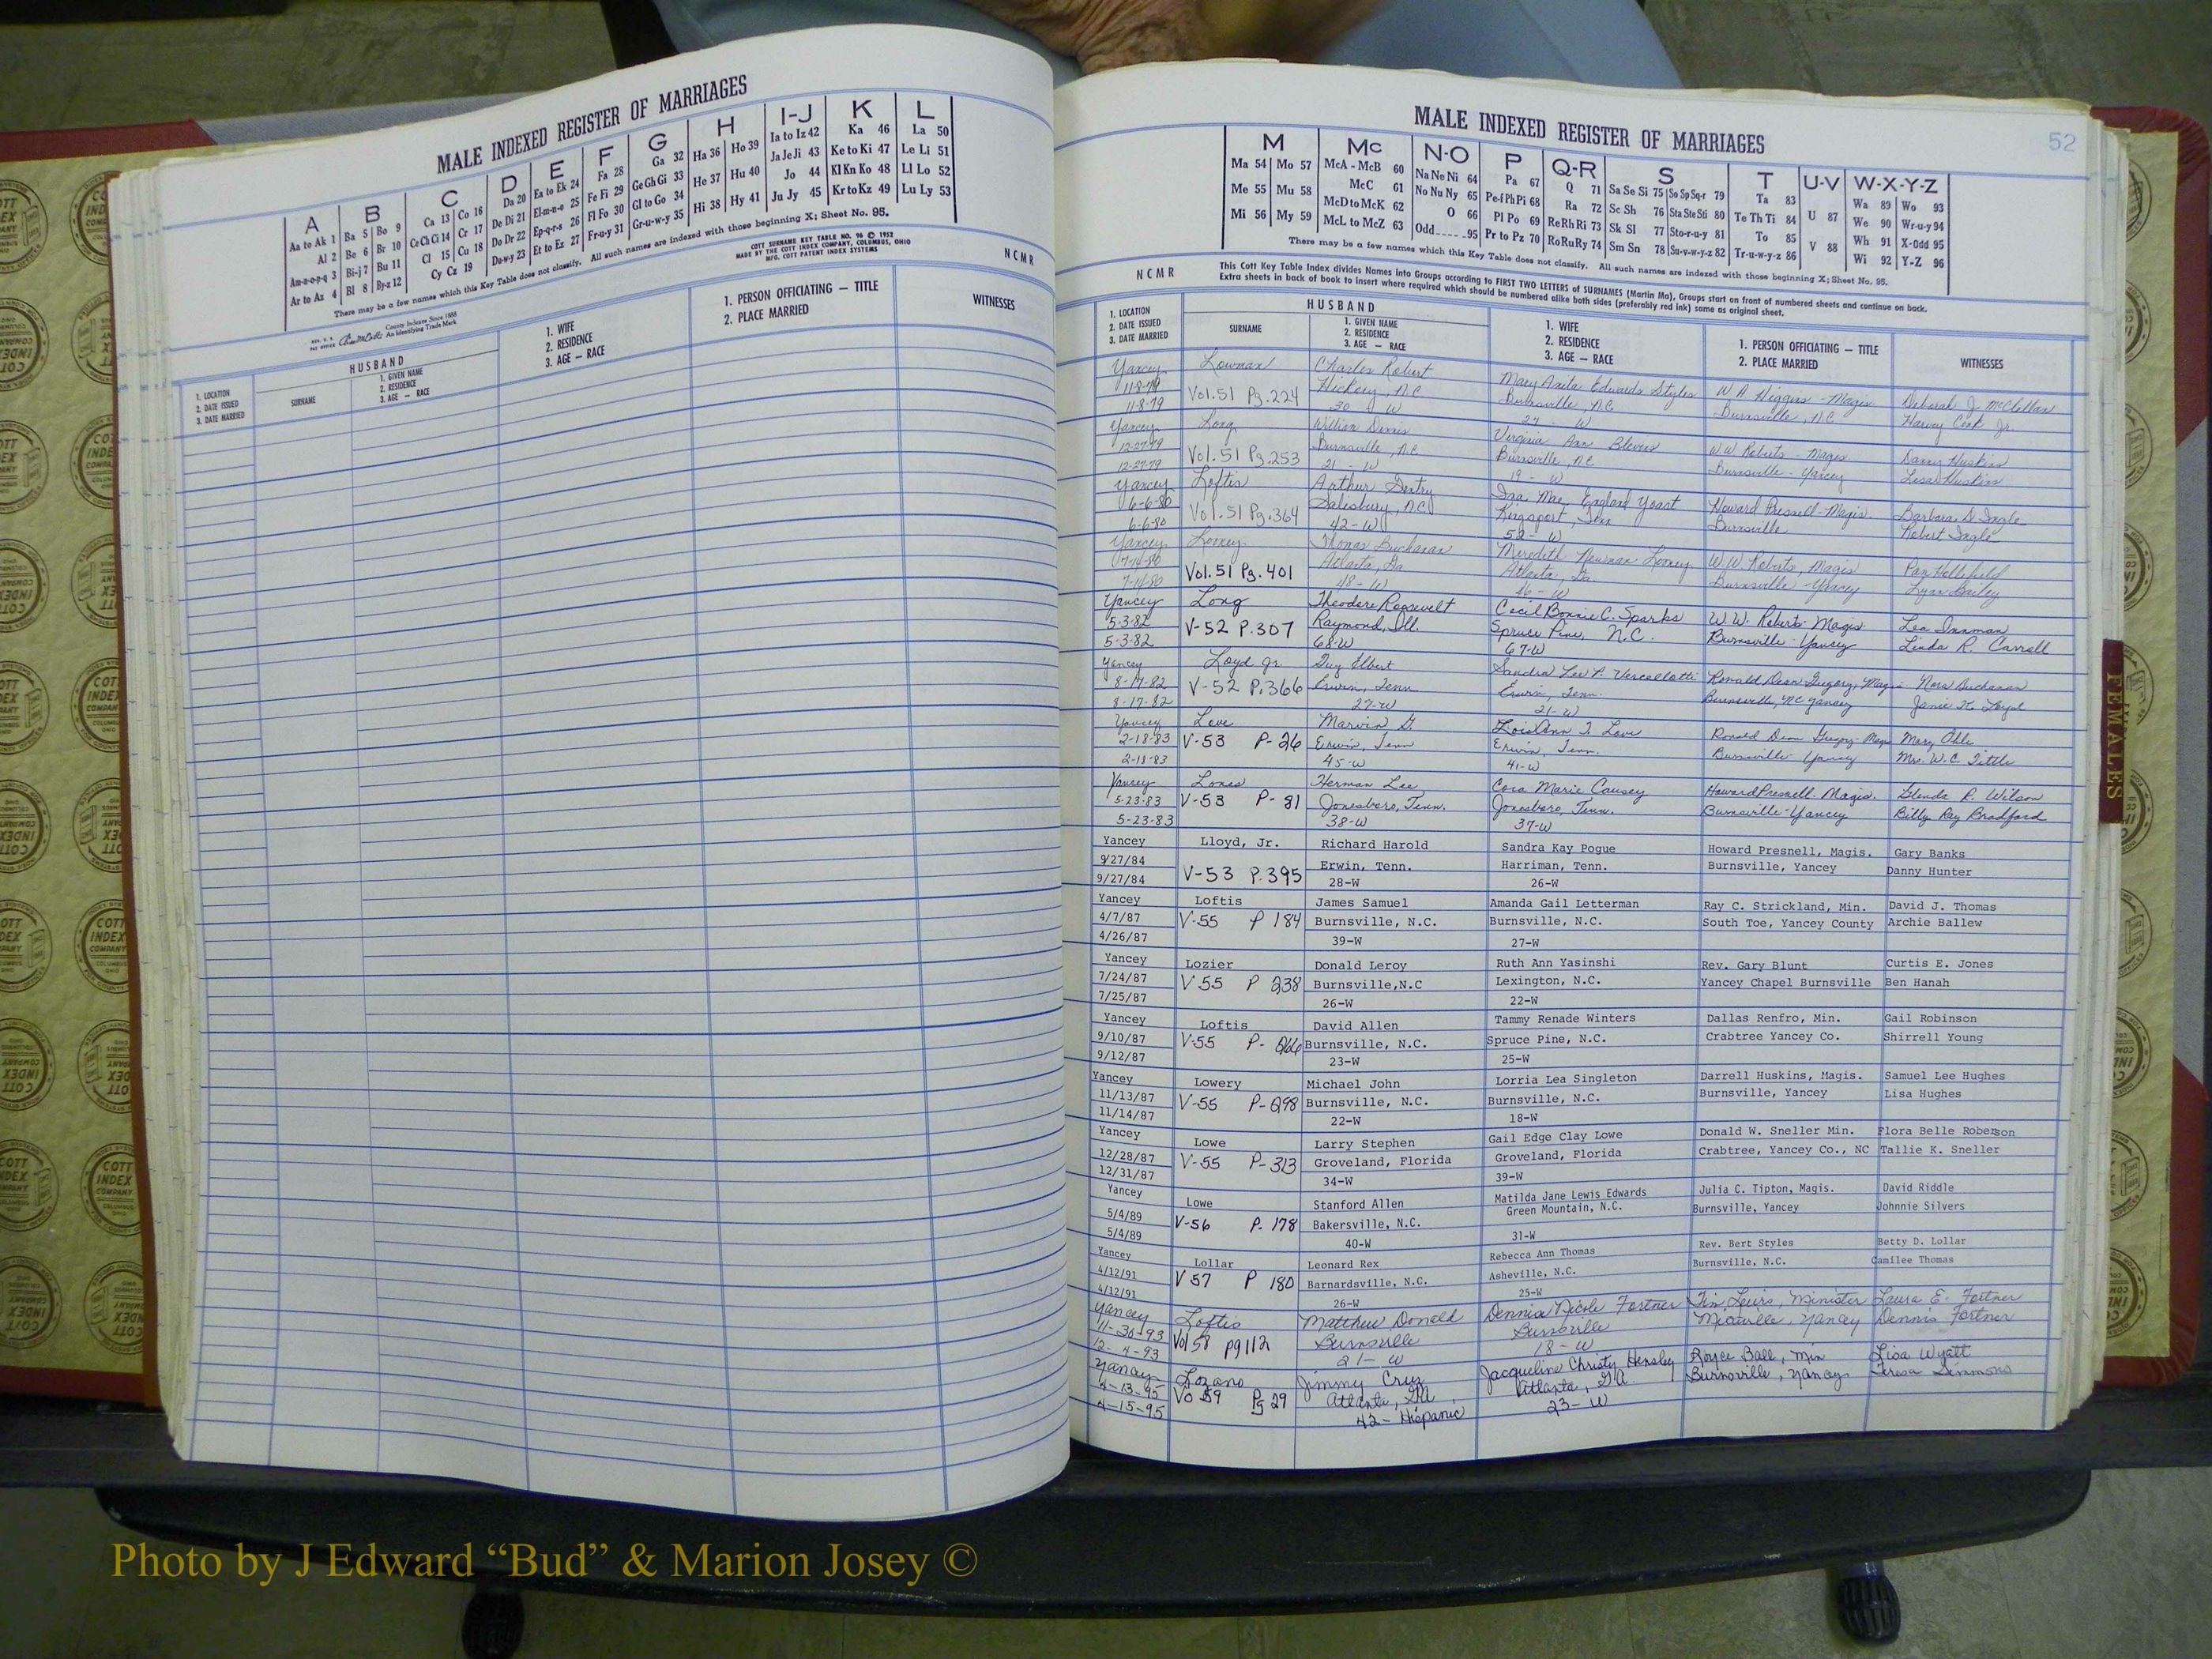 MALE INDEXED REGISTER OF MARRIAGES
A B C D E F G H I-J K L
Aa to Ak 1 Ba 5 Bo 9 Ca 13 Co 16 Da 20 Ea to Ek 24 Fa 28 Ga 32 Ha 36 Ho 39 Ia to Iz 42 Ka 46 La 50
Al 2 Be 6 Br 10 Ce Ch Ci 14 Cr 17 De Di 21 El-m-n-o 25 Fe Fi 29 Ge Gh Gi 33 He 37 Hu 40 Ja Je Ji 43 Ke to Ki 47 Le Li 51
Am-n-o-p-q 3 Bi-j 7 Bu 11 Cl 15 Cu 18 Do Dr 22 Ep-q-r-s 26 Fl Fo 30 Gl to Go 34 Hi 38 Hy 41 Jo 44 Kl Kn Ko 48 Ll Lo 52
Ar to Az 4 Bl 8 By-z 12 Cy Cz 19 Du-w-y 23 Et to Ez 27 Fr-u-y 31 Gr-u-w-y 35 Ju Jy 45 Kr to Kz 49 Lu Ly 53
There may be a few names which this Key Table does not classify. All such names are indexed with those beginning X; Sheet No. 95.
COTT SURNAME KEY TABLE NO. 96 © 1952
MADE BY THE COTT INDEX COMPANY, COLUMBUS, OHIO
MFG. COTT PATENT INDEX SYSTEMS
NCMR
County Indexes Since 1888
An Identifying Trade Mark
1. LOCATION
2. DATE ISSUED
3. DATE MARRIED
HUSBAND
SURNAME
1. GIVEN NAME
2. RESIDENCE
3. AGE — RACE
1. WIFE
2. RESIDENCE
3. AGE — RACE
1. PERSON OFFICIATING — TITLE
2. PLACE MARRIED
WITNESSES
MALE INDEXED REGISTER OF MARRIAGES
52
M Mc N-O P Q-R S T U-V W-X-Y-Z
Ma 54 Mo 57 McA - McB 60 Na Ne Ni 64 Pa 67 Q 71 Sa Se Si 75 So Sp Sq-r 79 Ta 83 U 87 Wa 89 Wo 93
Me 55 Mu 58 McC 61 No Nu Ny 65 Pe-f Ph Pi 68 Ra 72 Sc Sh 76 Sta Ste Sti 80 Te Th Ti 84 V 88 We 90 Wr-u-y 94
Mi 56 My 59 McD to McK 62 O 66 Pl Po 69 Re Rh Ri 73 Sk Sl 77 Sto-r-u-y 81 To 85 Wh 91 X-Odd 95
McL to McZ 63 Odd 95 Pr to Pz 70 Ro Ru Ry 74 Sm Sn 78 Su-v-w-y-z 82 Tr-u-w-y-z 86 Wi 92 Y-Z 96
There may be a few names which this Key Table does not classify. All such names are indexed with those beginning X; Sheet No. 95.
NCMR
This Cott Key Table Index divides Names into Groups according to FIRST TWO LETTERS of SURNAMES (Martin Ma), Groups start on front of numbered sheets and continue on back.
Extra sheets in back of book to insert where required which should be numbered alike both sides (preferably red ink) same as original sheet.
1. LOCATION
2. DATE ISSUED
3. DATE MARRIED
HUSBAND
SURNAME
1. GIVEN NAME
2. RESIDENCE
3. AGE — RACE
1. WIFE
2. RESIDENCE
3. AGE — RACE
1. PERSON OFFICIATING — TITLE
2. PLACE MARRIED
WITNESSES
Yancey Lowman Charles Robert Mary Anita Edwards Styles W A Higgins - Magis Deborah J. McClellan
11-8-79 Vol.51 Pg.224 Hickory, N.C Burnsville, N.C. Burnsville, N.C Harvey Cook Jr.
11-8-79 30 W 27 - W
Yancey Long William Dennis Virginia Ann Blevins W.W. Roberts - Magis Danny Huskins
12-27-79 Vol.51 Pg.253 Burnsville, N.C Burnsville, N.C Burnsville - Yancey Lisa Huskins
12-27-79 21 - W 19 - W
Yancey Loftis Arthur Gentry Ina Mae England Yoast Howard Presnell-Magis. Barbara D. Ingle
6-6-80 Vol.51 Pg.364 Salisbury, N.C Kingsport, Tenn Burnsville Robert Ingle
6-6-80 42-W 52-W
Yancey Looney Thomas Buchanan Meredith Newman Looney W.W. Roberts, Magis Pam Hollifield
7-14-80 Vol.51 Pg.401 Atlanta, Ga Atlanta, Ga. Burnsville-Yancey Lynn Bailey
7-14-80 48-W 46-W
Yancey Long Theodore Roosevelt Cecil Bonnie C. Sparks W.W. Roberts Magis Lea Inman
5-3-82 V-52 P.307 Raymond, Ill. Spruce Pine, N.C. Burnsville-Yancey Linda R. Carroll
5-3-82 68-W 67-W
Yancey Loyd Jr Guy Elbert Sandra Lee P. Vercellotti Ronald Dean Gregory, Magis Nora Buchanan
8-17-82 V-52 P.366 Erwin, Tenn Erwin, Tenn. Burnsville, NC Yancey Janie K. Loyd
8-17-82 27-W 21-W
Yancey Love Marvin G. Lois Ann T. Love Ronald Dean Gregory-Magis Mary Ohle
2-18-83 V-53 P-26 Erwin, Tenn Erwin, Tenn. Burnsville-Yancey Mrs. W.C. Tittle
2-18-83 45-W 41-W
Yancey Lones Herman Lee Cora Marie Causey Howard Presnell-Magis. Glenda R. Wilson
5-23-83 V-53 P-81 Jonesboro, Tenn. Jonesboro, Tenn. Burnsville-Yancey Billy Ray Bradford
5-23-83 38-W 37-W
Yancey Lloyd, Jr. Richard Harold Sandra Kay Pogue Howard Presnell, Magis. Gary Banks
9/27/84 V-53 P.395 Erwin, Tenn. Harriman, Tenn. Burnsville, Yancey Danny Hunter
9/27/84 28-W 26-W
Yancey Loftis James Samuel Amanda Gail Letterman Ray C. Strickland, Min. David J. Thomas
4/7/87 V-55 P 184 Burnsville, N.C. Burnsville, N.C. South Toe, Yancey County Archie Ballew
4/26/87 39-W 27-W
Yancey Lozier Donald Leroy Ruth Ann Yasinshi Rev. Gary Blunt Curtis E. Jones
7/24/87 V 55 P 238 Burnsville,N.C Lexington, N.C. Yancey Chapel Burnsville Ben Hanah
7/25/87 26-W 22-W
Yancey Loftis David Allen Tammy Renade Winters Dallas Renfro, Min. Gail Robinson
9/10/87 V-55 P- 266 Burnsville, N.C. Spruce Pine, N.C. Crabtree Yancey Co. Shirrell Young
9/12/87 23-W 25-W
Yancey Lowery Michael John Lorria Lea Singleton Darrell Huskins, Magis. Samuel Lee Hughes
11/13/87 V-55 P-298 Burnsville, N.C. Burnsville, N.C. Burnsville, Yancey Lisa Hughes
11/14/87 22-W 18-W
Yancey Lowe Larry Stephen Gail Edge Clay Lowe Donald W. Sneller Min. Flora Belle Roberson
12/28/87 V-55 P-313 Groveland, Florida Groveland, Florida Crabtree, Yancey Co., NC Tallie K. Sneller
12/31/87 34-W 39-W
Yancey Lowe Stanford Allen Matilda Jane Lewis Edwards Julia C. Tipton, Magis. David Riddle
5/4/89 V-56 P. 178 Bakersville, N.C. Green Mountain, N.C. Burnsville, Yancey Johnnie Silvers
5/4/89 40-W 31-W
Yancey Lollar Leonard Rex Rebecca Ann Thomas Rev. Bert Styles Betty D. Lollar
4/12/91 V 57 P 180 Barnardsville, N.C. Asheville, N.C. Burnsville, N.C. Camilee Thomas
4/12/91 26-W 25-W
Yancey Loftis Matthew Donald Dennia Nicole Fortner Tim Lewis, Minister Laura E. Fortner
11-30-93 Vol 58 pg 112 Burnsville Burnsville Micaville, Yancey Dennis Fortner
12-4-93 21-W 18-W
Yancey Lozano Jimmy Cruz Jacqueline Christy Hensley Royce Ball, Min Lisa Wyatt
4-13-95 Vo 59 Pg 29 Atlanta, GA Atlanta, GA Burnsville, Yancey Teresa Simmons
4-15-95 42-Hispanic 23-W
FEMALES
COTT
INDEX
COMPANY
OHIO
Photo by J Edward “Bud” & Marion Josey ©